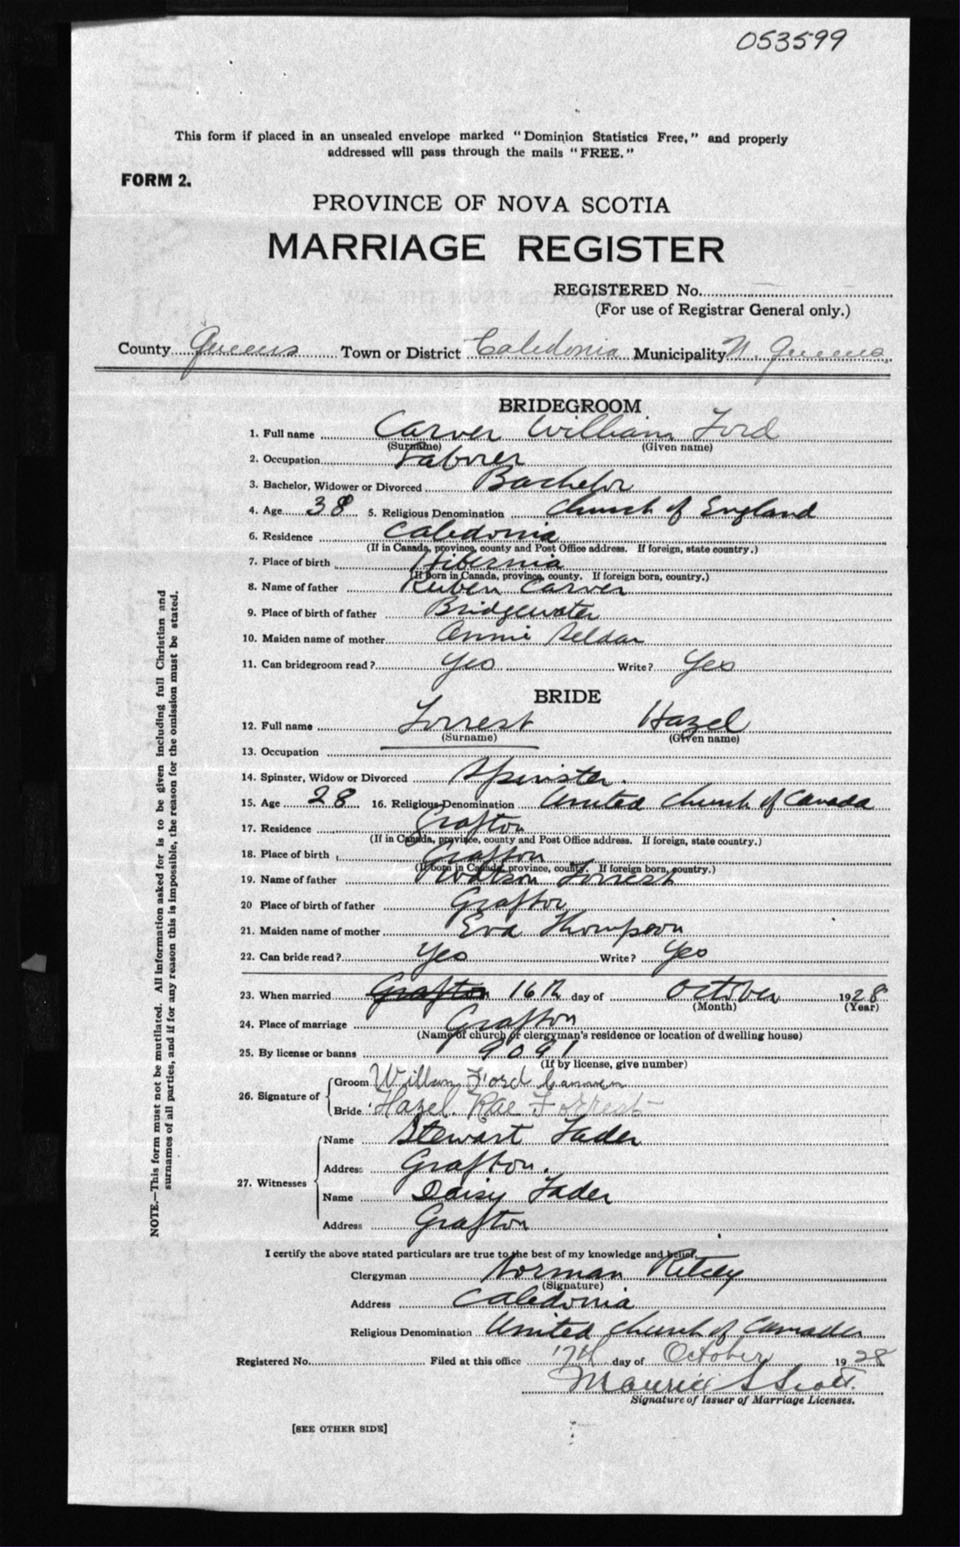 053599
This form if placed in an unsealed envelope marked "Dominion Statistics Free," and properly
addressed will pass through the mails "FREE."
FORM 2.
PROVINCE OF NOVA SCOTIA
MARRIAGE REGISTER
REGISTERED No.
(For use of Registrar General only.)
County Queens Town or District Caledonia Municipality N. Queens
BRIDEGROOM
1. Full name Carver William Ford
(Surname) (Given name)
2. Occupation Laborer
3. Bachelor, Widower or Divorced Bachelor
4. Age 38 5. Religious Denomination Church of England
6. Residence Caledonia
(If in Canada, province, county and Post Office address. If foreign, state country.)
7. Place of birth Hibernia
(If born in Canada, province, county. If foreign born, country.)
8. Name of father Reuben Carver
9. Place of birth of father Bridgewater
10. Maiden name of mother Annie Seldon
11. Can bridegroom read? Yes Write? Yes
BRIDE
12. Full name Forrest Hazel
(Surname) (Given name)
13. Occupation
14. Spinster, Widow or Divorced Spinster.
15. Age 28 16. Religious Denomination United Church of Canada
17. Residence Grafton
(If in Canada, province, county and Post Office address. If foreign, state country.)
18. Place of birth Grafton
(If born in Canada, province, county. If foreign born, country.)
19. Name of father Watson Forrest
20 Place of birth of father Grafton
21. Maiden name of mother Eva Thompson
22. Can bride read? Yes Write? Yes
23. When married Grafton 16th day of October 1928
(Month) (Year)
24. Place of marriage Grafton
(Name of church or clergyman's residence or location of dwelling house)
25. By license or banns 9091
(If by license, give number)
26. Signature of Groom William Ford
Bride Hazel Rae Forrest
27. Witnesses Name Stewart Fader
Address Grafton.
Name Daisy Fader
Address Grafton
I certify the above stated particulars are true to the best of my knowledge and belief.
Clergyman Norman
(Signature)
Address Caledonia
Religious Denomination United Church of Canada
Registered No. Filed at this office 17th day of October 1928
Maurice S Scott.
Signature of Issuer of Marriage Licenses.
[SEE OTHER SIDE]
NOTE.—This form must not be mutilated. All information asked for is to be given including full Christian and
surnames of all parties, and if for any reason this is impossible, the reason for the omission must be stated.